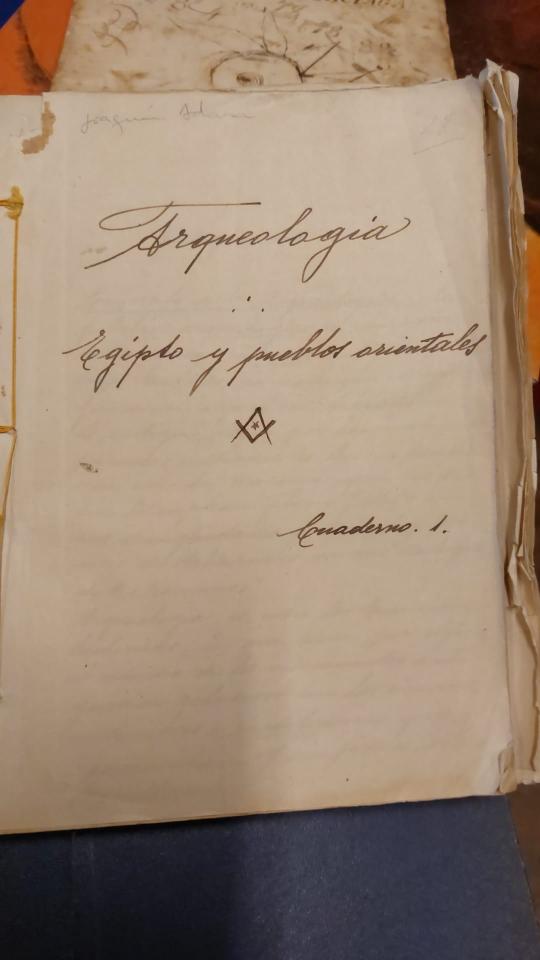 Joaquín
Arqueología
∴
Egipto y pueblos orientales
Cuaderno. 1.